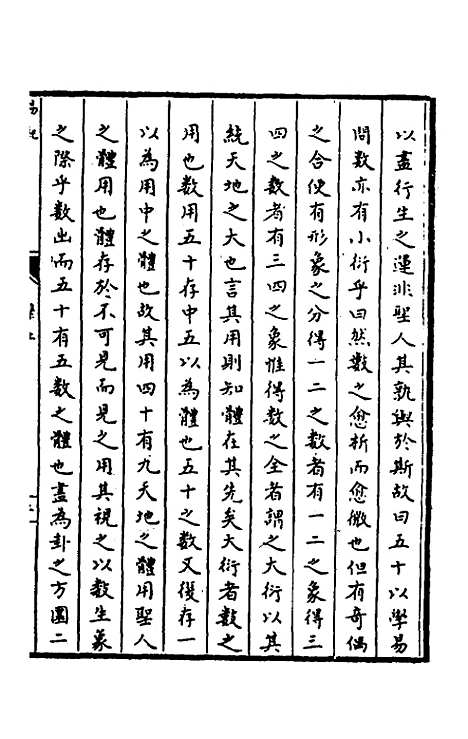 以盡衍生之運非聖人其孰與於斯故曰五十以學易
問數亦有小衍乎曰然數之愈析而愈微也但有奇偶
之合便有形象之分得一二之數者有一二之象得三
四之數者有三四之象惟得數之全者謂之大衍以其
統天地之大也言其用則知體在其先矣大衍者數之
用也數用五十存中五以為體也五十之數又復存一
以為用中之體也故其用四十有九天地之體用聖人
之體用也體存於不可見而見之用其視之以數生象
之際乎數出而五十有五數之體也畫為卦之方圓二